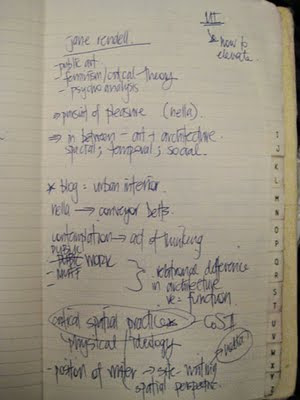 MI
↳ how to elevate.
jane rendell.
- public art
- feminism/critical theory
- psychoanalysis
→ pursuit of pleasure (nella)
⇒ in between - art + architecture.
spatial; temporal; social.
* blog = urban interior.
nella → conveyor belts.
contemplation → act of thinking
public
work
- muf?
relational difference
in architecture
= function
critical spatial practice * GSI
physical / ideology
- position of writer → site-writing
spatial perspective.
I
J
K
L
M
N
O
P
Q
R
S
T
U
V
W
X
Y
Z